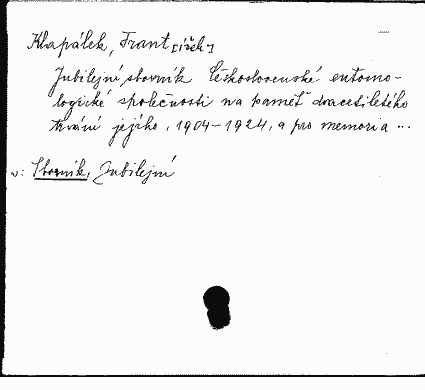 Klapálek, Frant[išek]
Jubilejní sborník Československé entomo-
logické společnosti na paměť dvacetiletého
trvání jejího, 1904-1924, a pro memoria ...
v: Sborník, Jubilejní